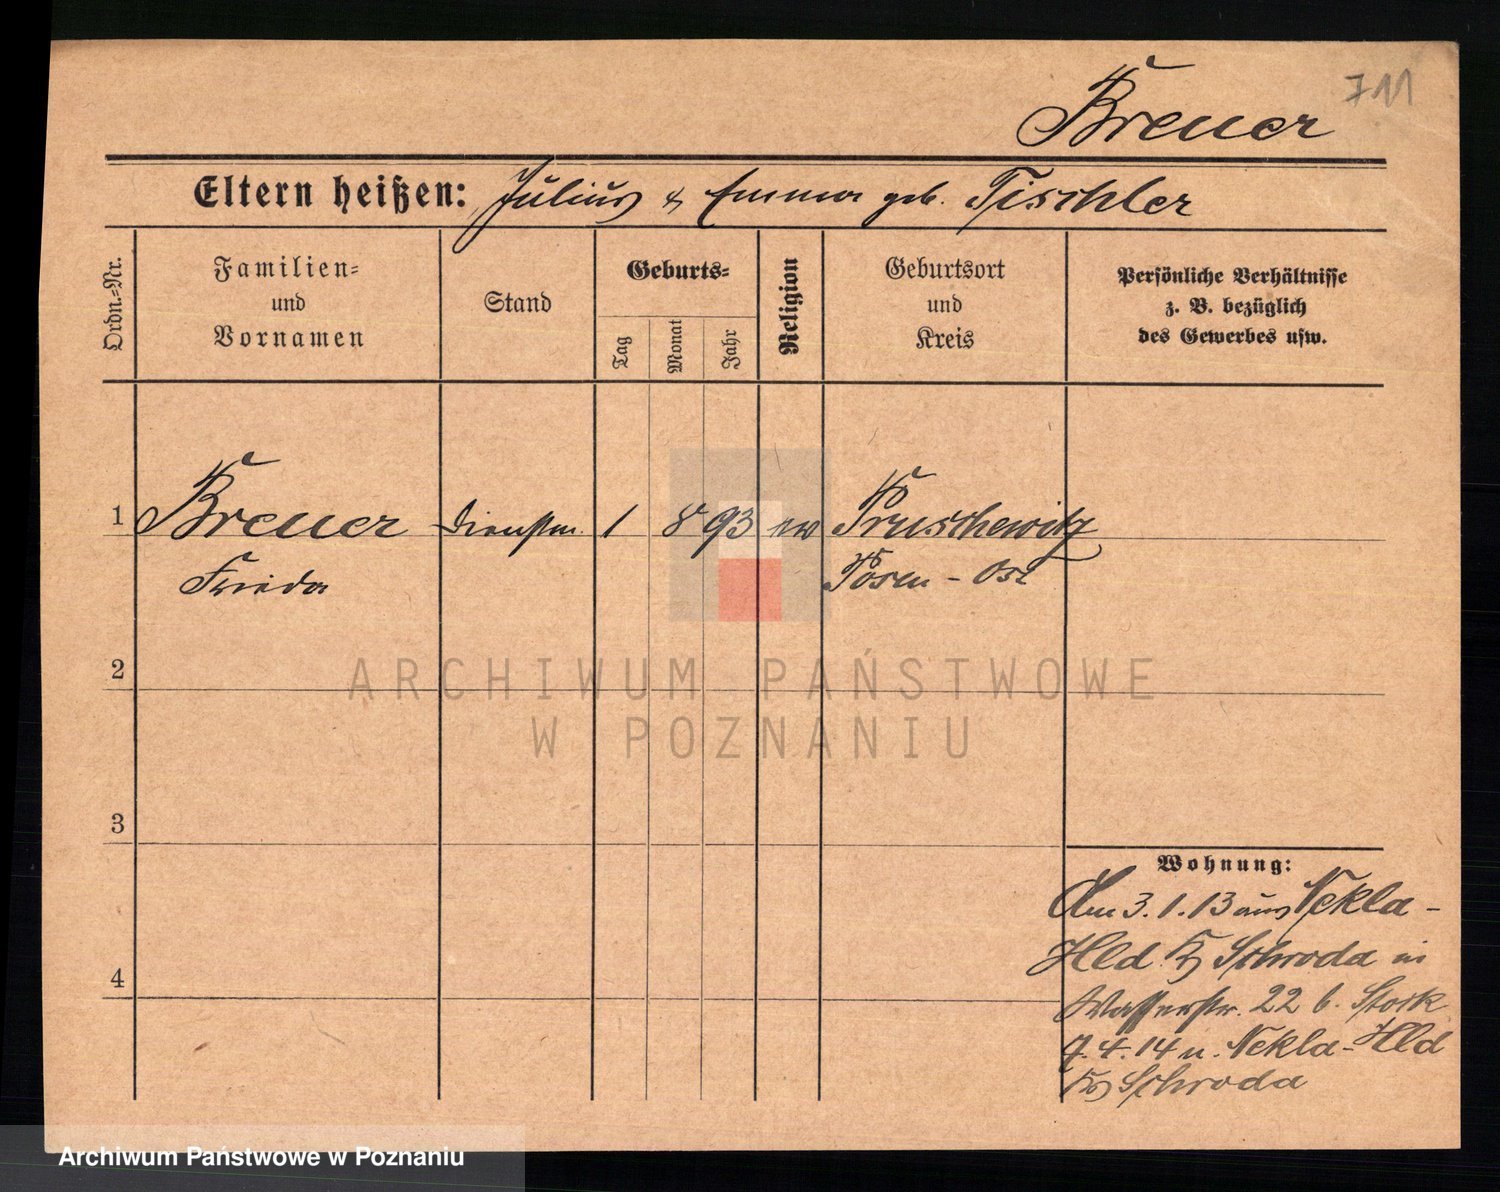 711
Breuer
Eltern heißen: Julius & Emma geb. Tischler
Ordn.=Nr.
Familien=
und
Vornamen
Stand
Geburts=
Tag
Monat
Jahr
Religion
Geburtsort
und
Kreis
Persönliche Verhältnisse
z. B. bezüglich
des Gewerbes usw.
1 Breuer Dienstm. 1 8 93 ev Pruschewitz
Frieda Posen - Ost
2
3
4
Wohnung:
Am 3.1.13 aus Nekla -
Hld. Kr Schroda in
Wasserstr. 22 b. Stork
7.4.14 n. Nekla-Hld
Kr Schroda
ARCHIWUM PAŃSTWOWE
W POZNANIU
Archiwum Państwowe w Poznaniu